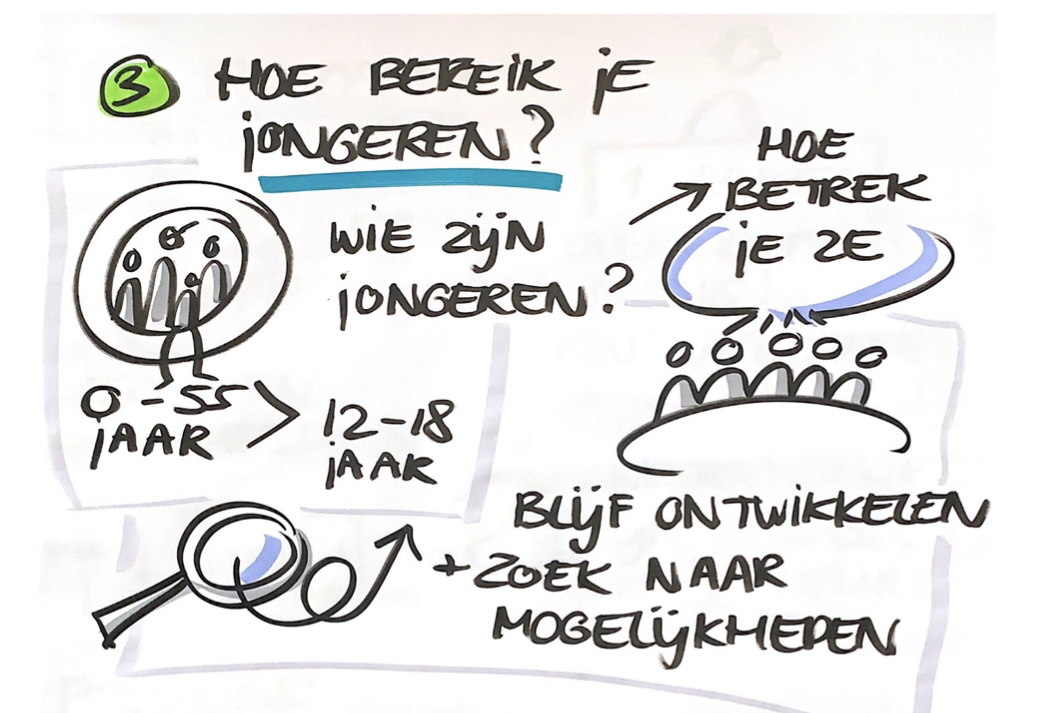 3 HOE BEREIK JE
JONGEREN?
WIE ZIJN
JONGEREN?
0-55
JAAR
>
12-18
JAAR
HOE
BETREK
JE ZE
BLIJF ONTWIKKELEN
+ ZOEK NAAR
MOGELIJKHEDEN